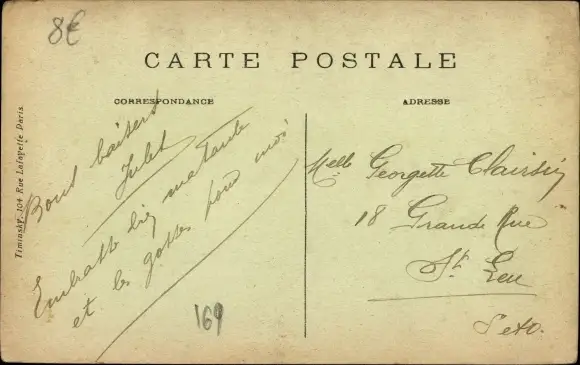 8€
CARTE POSTALE
CORRESPONDANCE
ADRESSE
Timinsky, 104 Rue Lafayette Paris.
Bons baisers
Jules
Embrasse bien ma tante
et les gosses pour moi
169
Melle Georgette Clairsin
18 Grande Rue
St Leu
S etO.